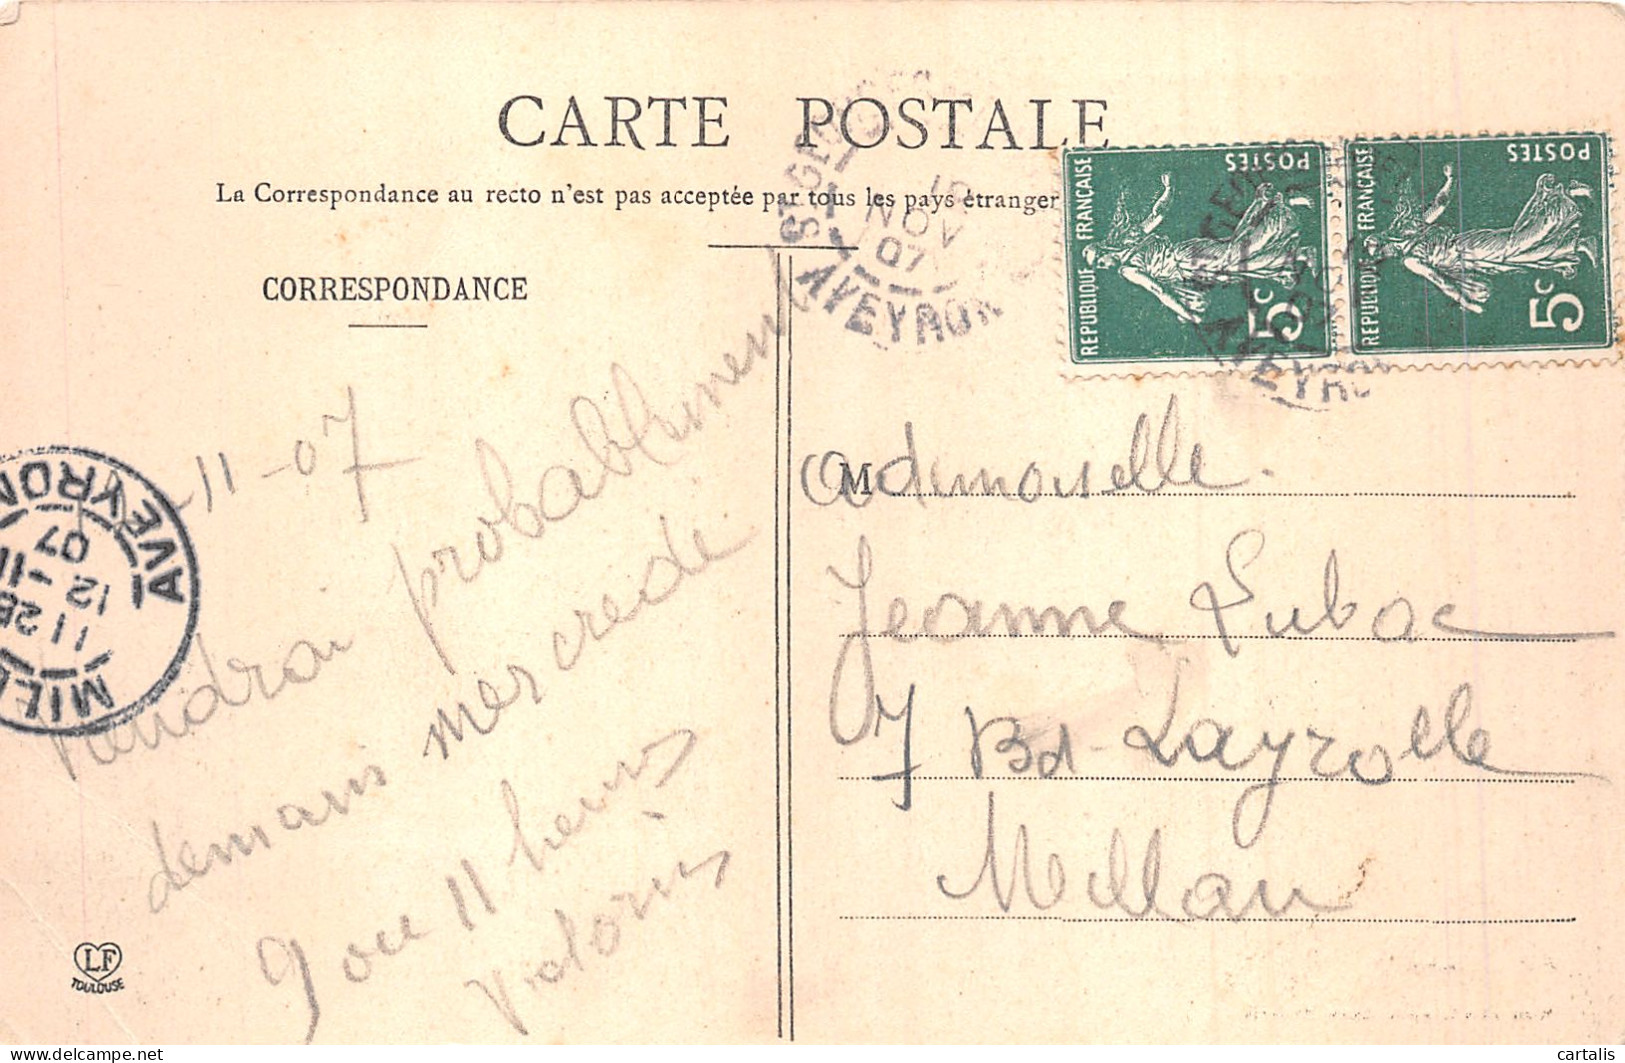 CARTE POSTALE
La Correspondance au recto n'est pas acceptée par tous les pays étranger
CORRESPONDANCE
ST GEO
10
NOV
07
AVEYRON
REPUBLIQUE FRANÇAISE
POSTES
5c
REPUBLIQUE FRANÇAISE
POSTES
5c
AVEYRO
-11-07
viendrai probablement
demain mercredi
9 ou 11 heures
MIL
11 25
12 - 11
07
AVEYRON
Mademoiselle.
Jeanne Lubac
7 Bd- Layrolle
Millau
LF
TOULOUSE
cartalis
delcampe.net